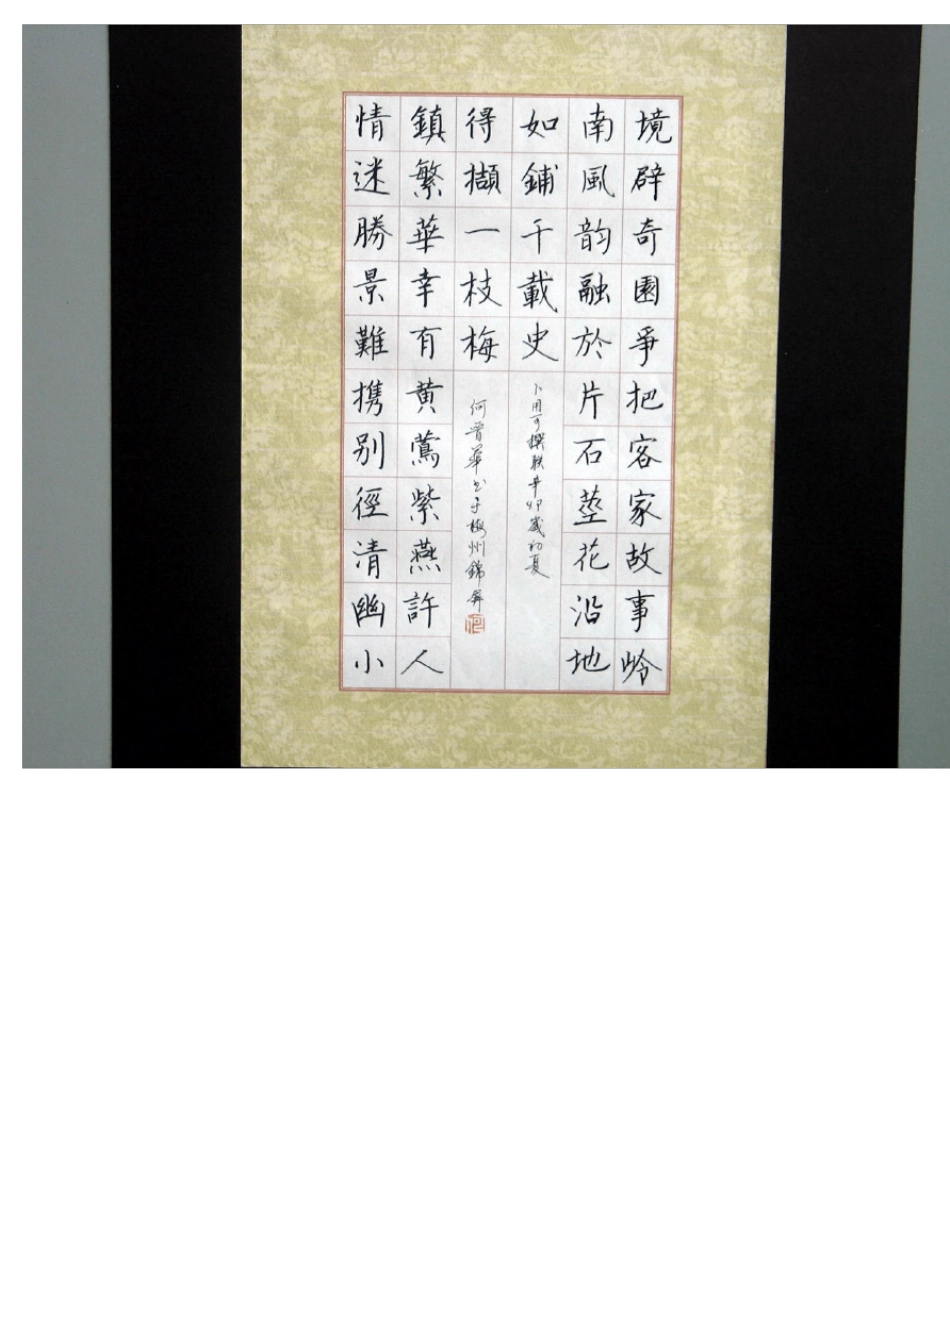 境辟奇園爭把客家故事岭
南風韵融於片石莖花沿地
如鋪千載史
情迷勝景難携别徑清幽小
鎮繁華幸有黄鶯紫燕許人
得擷一枝梅
卜用可撰联辛卯歲初夏
何晋華书于梅州錦屏